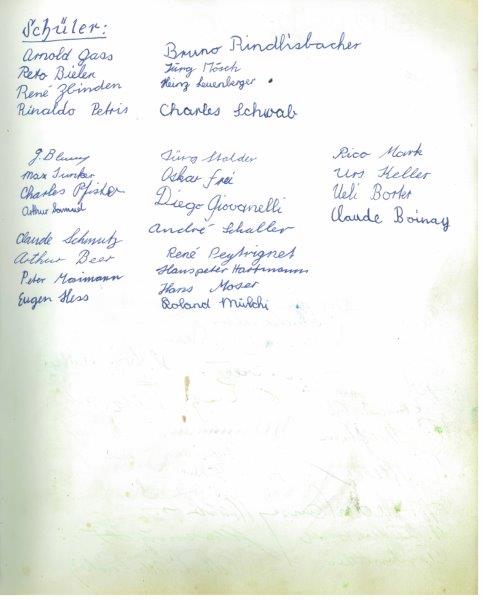 Schüler:
Arnold Gass
Reto Bieler
René Zbinden
Rinaldo Petris
Bruno Rindlisbacher
Jürg Mösch
Heinz Leuenberger
Charles Schwab
J. Blumy
Max Junker
Charles Pfister
Arthur Samuel
Claude Schmutz
Arthur Beer
Peter Maimann
Eugen Hess
Jürg Stalder
Oskar Frei
Diego Giovanelli
André Schaller
René Peytrignet
Hanspeter Hartmann
Hans Moser
Roland Mülchi
Rico Mark
Urs Keller
Ueli Borter
Claude Boinay